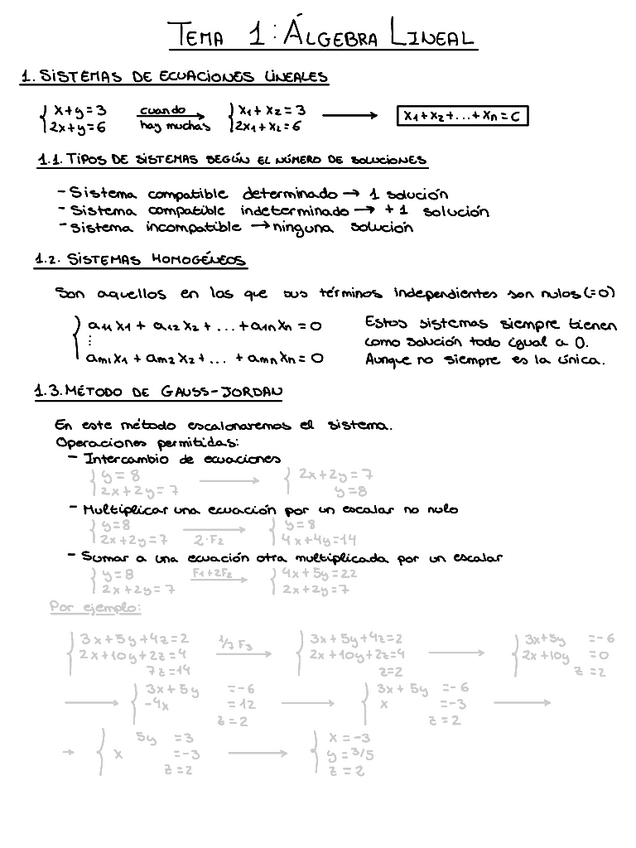 TEMA 1: ÁLGEBRA LINEAL
1. SISTEMAS DE ECUACIONES LINEALES
{ x+y=3 cuando → { x₁+x₂=3 → x₁+x₂+...+xₙ=C
2x+y=6 hay muchas 2x₁+x₂=6
1.1. TIPOS DE SISTEMAS SEGÚN EL NÚMERO DE SOLUCIONES
- Sistema compatible determinado → 1 solución
- Sistema compatible indeterminado → +1 solución
- Sistema incompatible → ninguna solución
1.2. SISTEMAS HOMOGÉNEOS
Son aquellos en los que sus términos independientes son nulos (=0)
{ a₁₁x₁ + a₁₂x₂ + ... + a₁ₙxₙ = 0 Estos sistemas siempre tienen
⋮ como solución todo igual a 0.
aₘ₁x₁ + aₘ₂x₂ + ... + aₘₙxₙ = 0 Aunque no siempre es la única.
1.3. MÉTODO DE GAUSS-JORDAN
En este método escalonaremos el sistema.
Operaciones permitidas:
- Intercambio de ecuaciones
{ y=8 → { 2x+2y=7
2x+2y=7 y=8
- Multiplicar una ecuación por un escalar no nulo
{ y=8 → { y=8
2x+2y=7 2·F₂ 4x+4y=14
- Sumar a una ecuación otra multiplicada por un escalar
{ y=8 F₁+2F₂ → { 4x+5y=22
2x+2y=7 2x+2y=7
Por ejemplo:
{ 3x+5y+4z=2 1/7 F₃ → { 3x+5y+4z=2 → { 3x+5y =-6
2x+10y+2z=4 2x+10y+2z=4 2x+10y =0
7z=14 z=2 z=2
→ { 3x+5y =-6 → { 3x+5y =-6 →
-4x =12 x =-3
z=2 z=2
→ { 5y =3 → { x=-3
x =-3 y=3/5
z=2 z=2